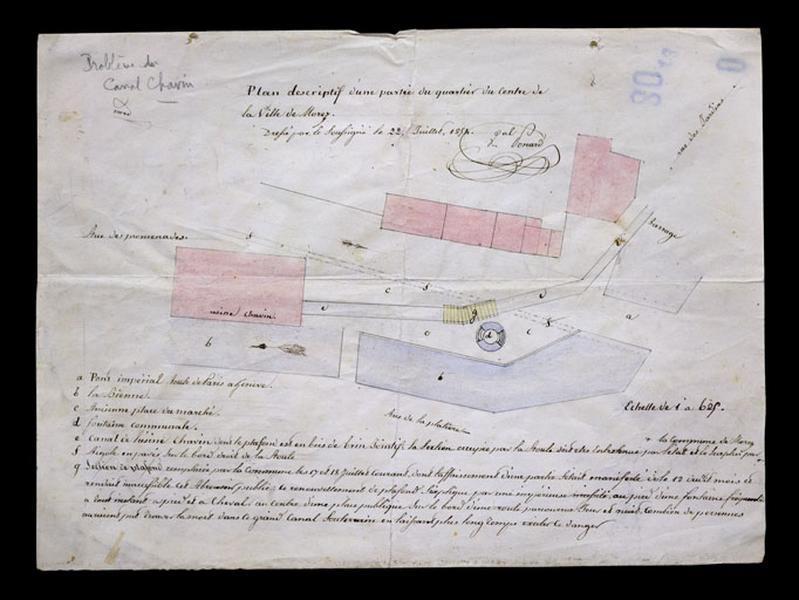 Problème du
Canal Chavin
80
0
Plan descriptif d'une partie du quartier du Centre de
la Ville de Morez.
Dressé par le Soussigné le 22, Juillet, 185
rue des Jardins
Rue des promenades.
f
Barrage
c
f
usine chavin.
e
g
e
d
c
c
f
a
b
b
a Pont impérial Route de Paris a Genève.
b la Bienne.
c Ancienne place du marché.
d fontaine communale.
Rue de la platière
Echelle de 1 a 625.
e Canal de l'usine Chavin dont le plafond est en bois de brin
la Section occupée par la Route doit être entretenue par l'etat et le Surplus par
la Commune de Morez
f Rigole en pavés Sur le bord droit de la Route
g Section de plafond remplacée par la Commune les 17 et 18 Juillet Courant, dont l'affaissement d'une partie S'etait manifesté dès le 12 dudit mois et
rendait inaccessible cet Abreuvoir public, ce renouvellement de plafond S'explique par une impérieuse nécessité au pied d'une fontaine fréquentée
a tout instant a pied et a Cheval au centre d'une place publique Sur le bord d'une route parcourue Jour et nuit. Combien de personnes
auraient pu trouver la mort dans ce grand Canal Souterrain en laissant plus long temps exister ce danger